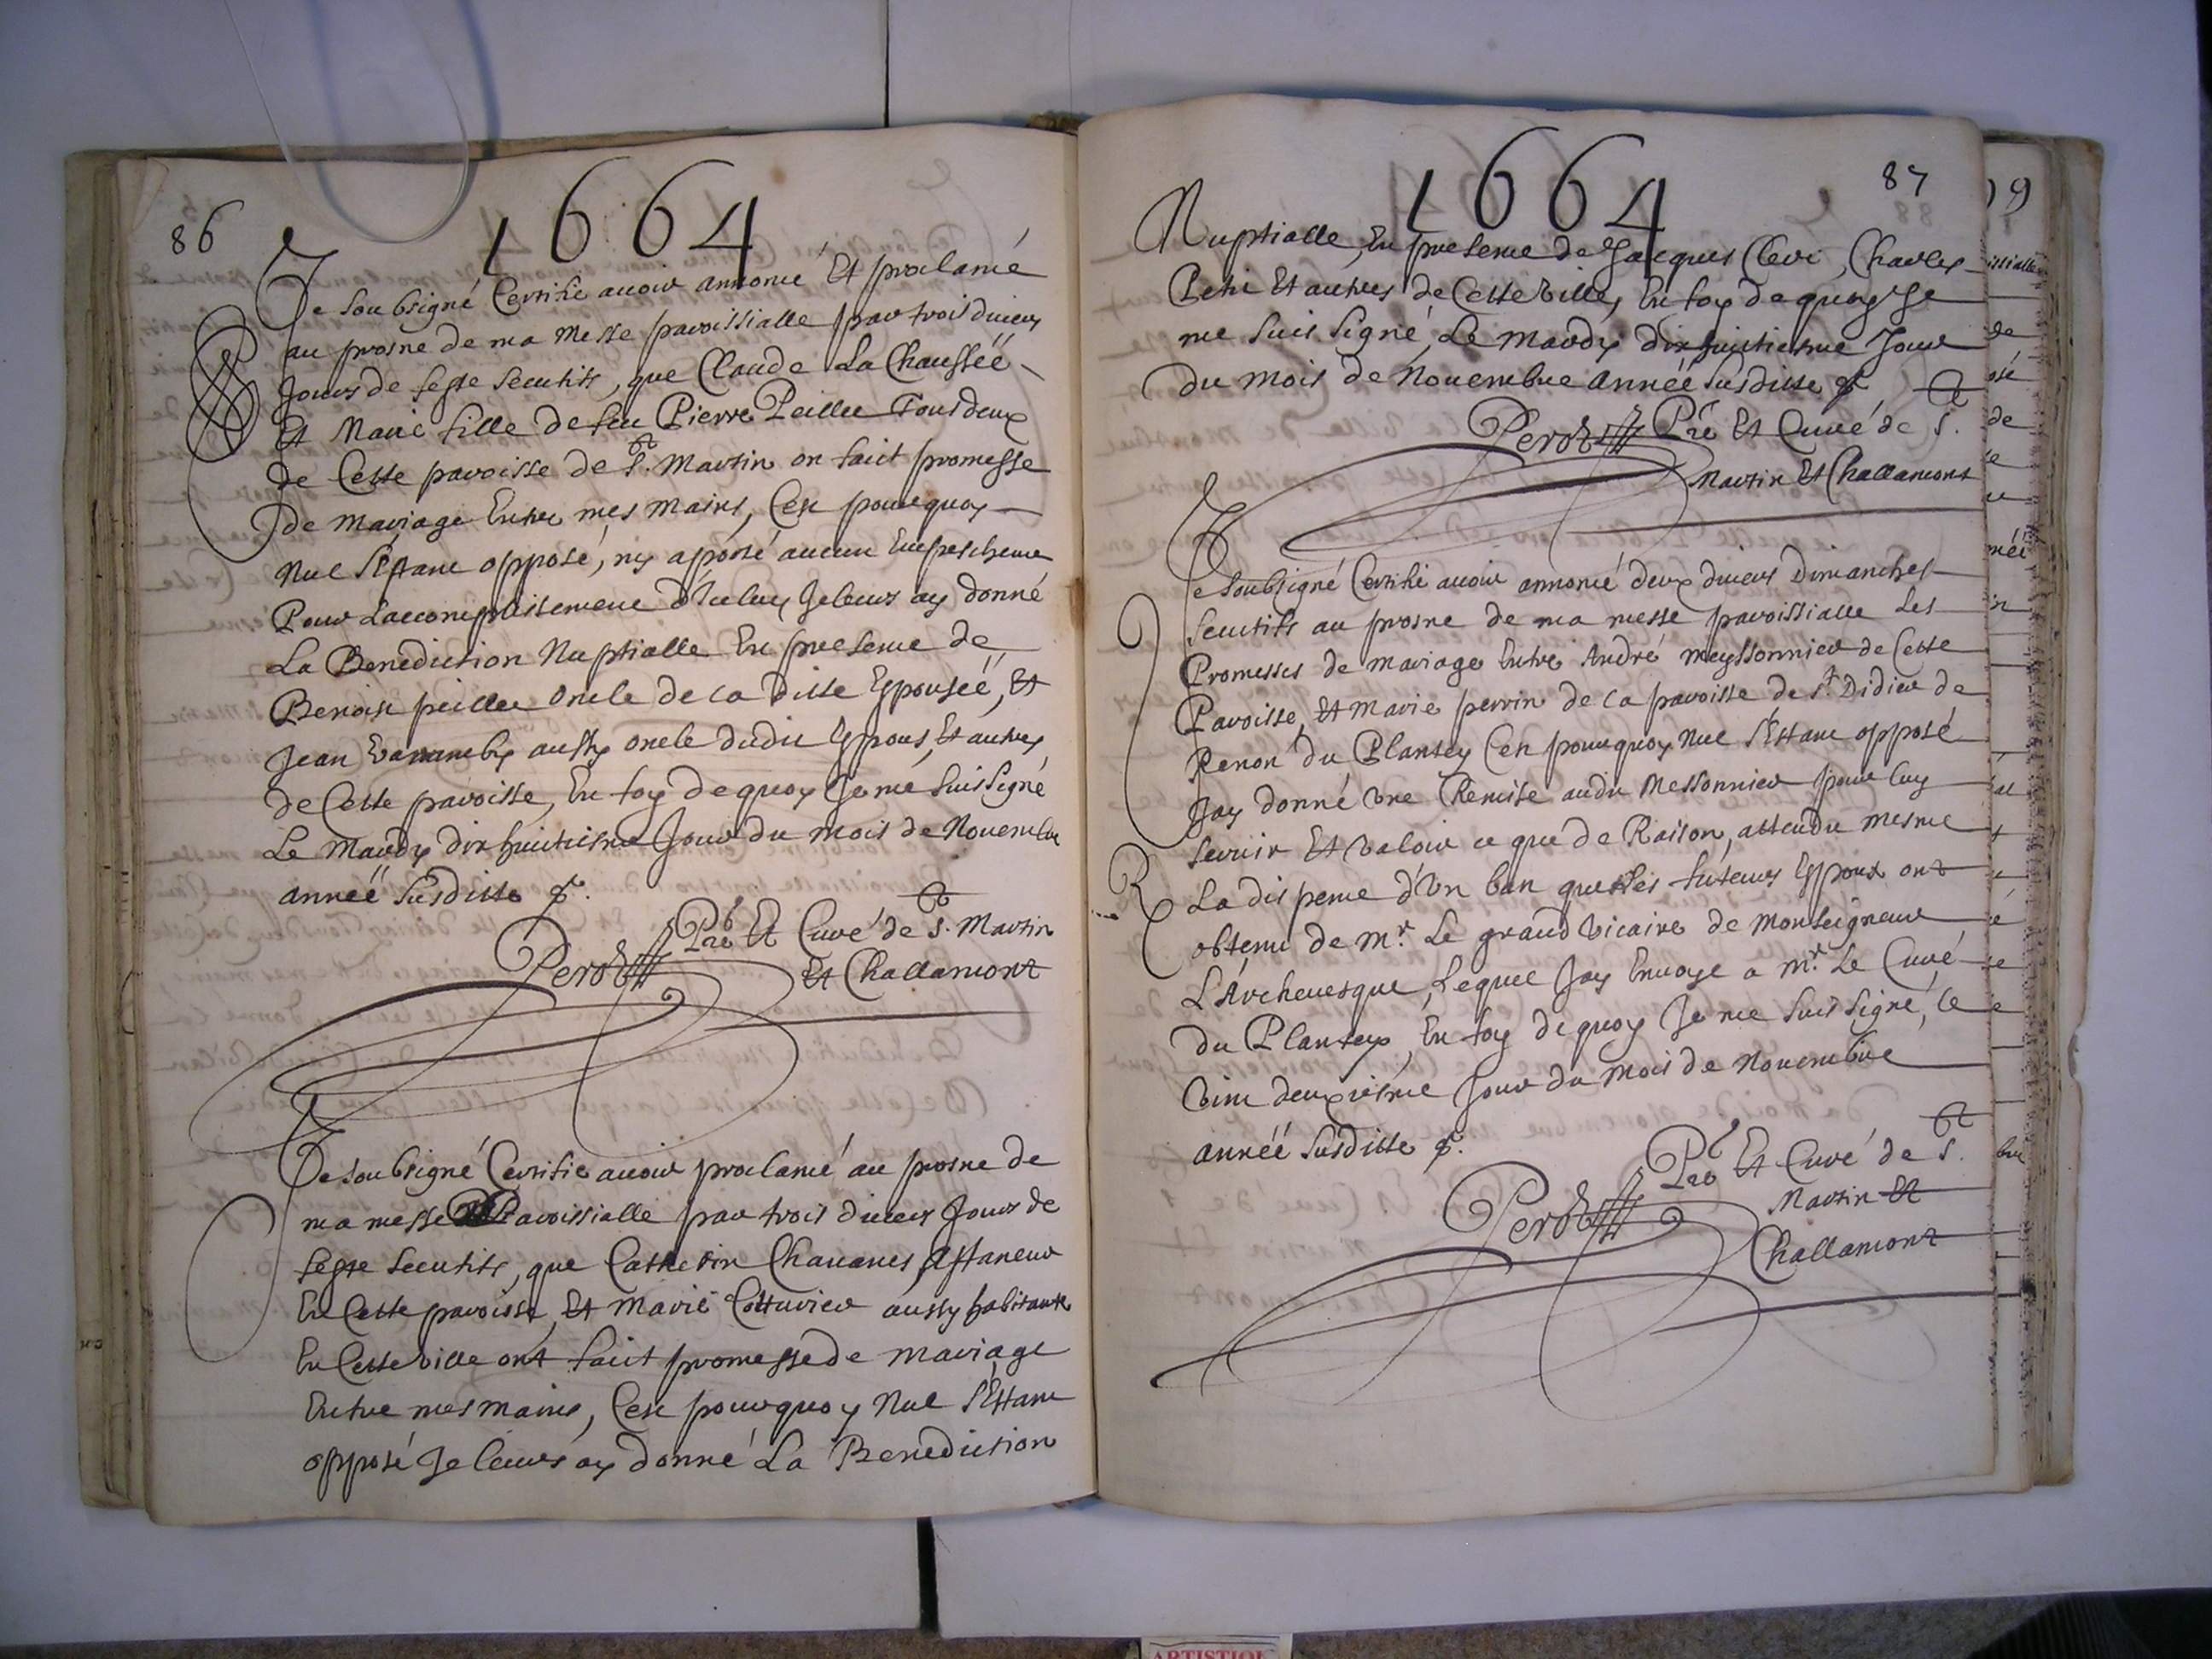 86
1664
Je soubsigné Certifie auoir annoncé Et proclamé
au prosne de ma Messe paroissialle par trois diuers
Jours de feste secutifs, que Claude La Chausséé
Et Marie fille de feu Pierre Peillee Tous deux
de Cette paroisse de S.t Martin on faict promesse
de mariage Entre mes mains, C'est pourquoy
Nul s'Estant opposé, ny aporté aucun Empeschement
Pour L'accomplissement d'Iceluy Je leurs ay donné
La Benediction Nuptialle En presence de
Benoist peillee Oncle de la ditte Espouséé, Et
Jean aussy oncle dudit Espous, Et autres
de Cette paroisse, En foy de quoy Je me suis signé
Le Mardy dix huictiesme Jour du mois de Nouembre
annéé susditte
Perot Pre Et Curé de S.t Martin
Et Challamont
Je soubsigné Certifie auoir proclamé au prosne de
ma messe Paroissialle par trois diuers Jours de
feste secutifs, que Catherin Chauanes, Affaneur
En Cette paroisse, Et Marie Cotturier aussy habitante
En Cette ville ont faict promesse de mariage
Entre mes mains, C'est pourquoy Nul s'Estant
opposé Je leurs ay donné La Benediction
87
1664
Nuptialle, En presence de Jacques Cleri, Charles
Petit Et autres de Cette ville, En foy de quoy Je
me suis signé, Le Mardy dix huictiesme Jour
du mois de Nouembre annéé susditte
Perot Pre Et Curé de S.t
Martin Et Challamont
Je soubsigné Certifie auoir annoncé deux diuers Dimanches
secutifs au prosne de ma messe paroissialle Les
Promesses de mariage Entre André Meyssonnier de Cette
Paroisse, Et Marie perrin de la paroisse de S.t Didier de
Renon du Plantey C'est pourquoy Nul s'Estant opposé
Jay donné Une Remise audit Messonnier pour luy
seruir Et Valoir ce que de Raison, attendu mesme
R La dispence d'Un ban que les futeurs Espoux ont
obtenu de M.r Le grand Vicaire de Monseigneur
L'Archeuesque, Lequel Jay Enuoyé a M.r Le Curé
du Plantey, En foy de quoy Je me suis signé, le
Vint deuxiesme Jour du mois de Nouembre
annéé susditte
Perot Pre Et Curé de S.t
Martin Et
Challamont
ARTISTIQUE